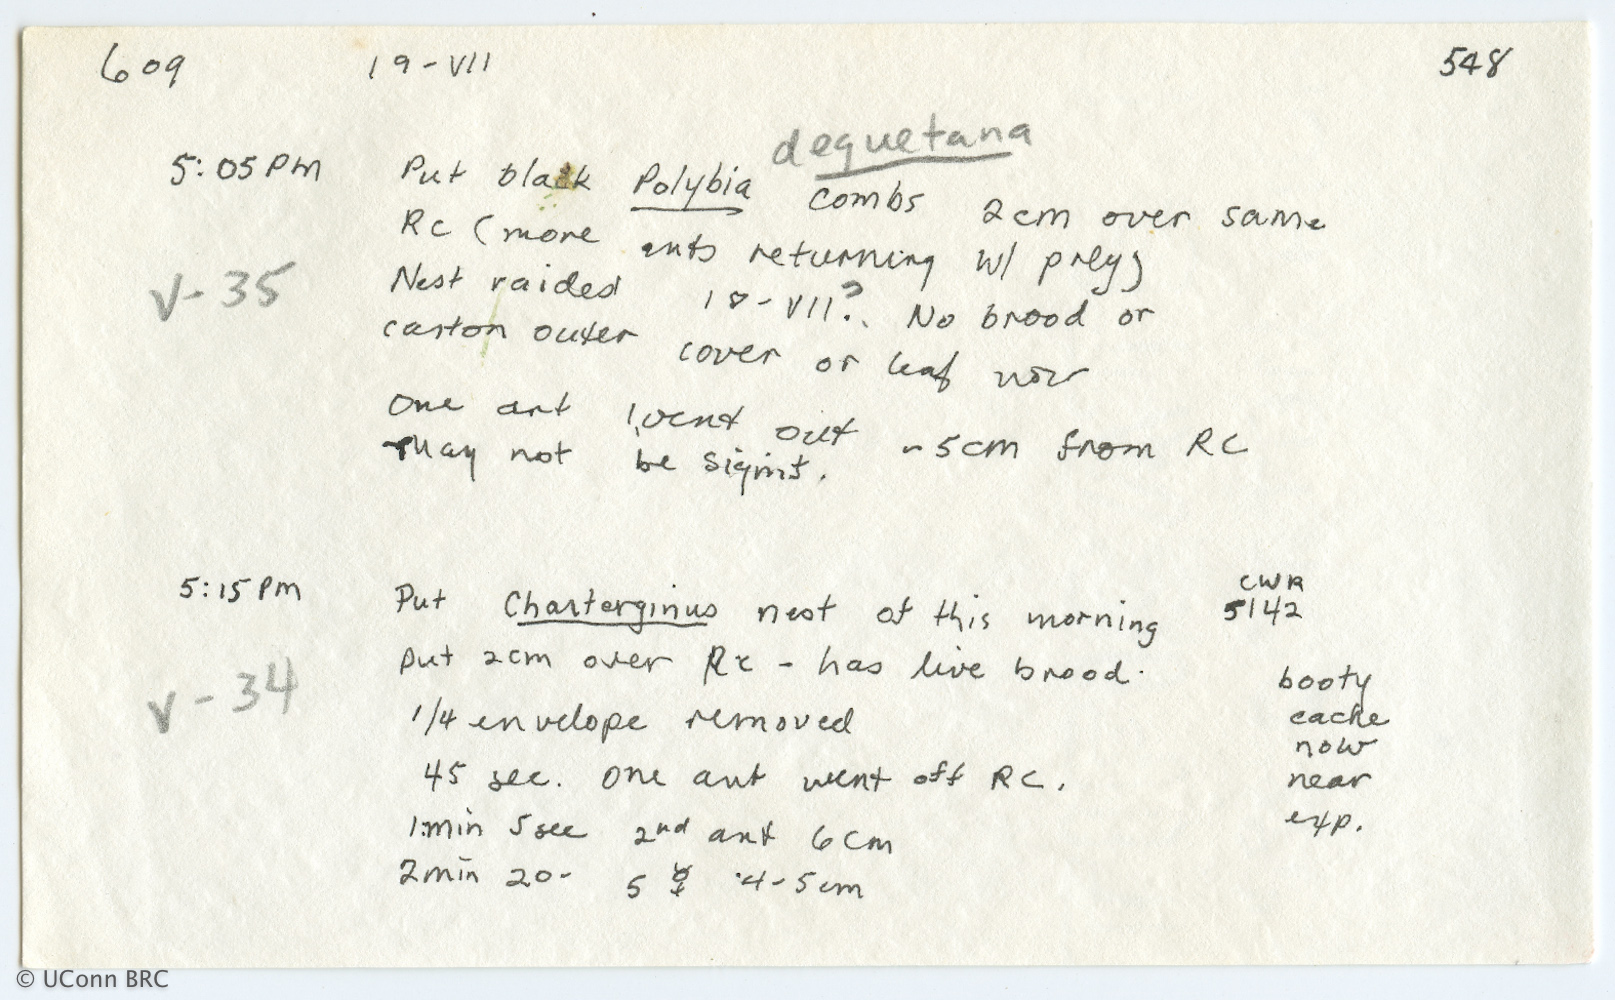 609 19-VII 548
dequetana
5:05 PM Put black Polybia combs 2cm over same
RC (more ants returning w/ prey)
V-35
Nest raided 18-VII?. No brood or
carton outer cover or leaf now
One ant went out ~5cm from RC
May not be signif.
5:15 PM Put Charterginus nest of this morning CWR 5142
put 2cm over RC - has live brood.
V-34
1/4 envelope removed
45 sec. One ant went off RC.
1min 5sec 2nd ant 6cm
2min 20- 5 ☿ 4-5cm
booty
cache
now
near
exp.
© UConn BRC